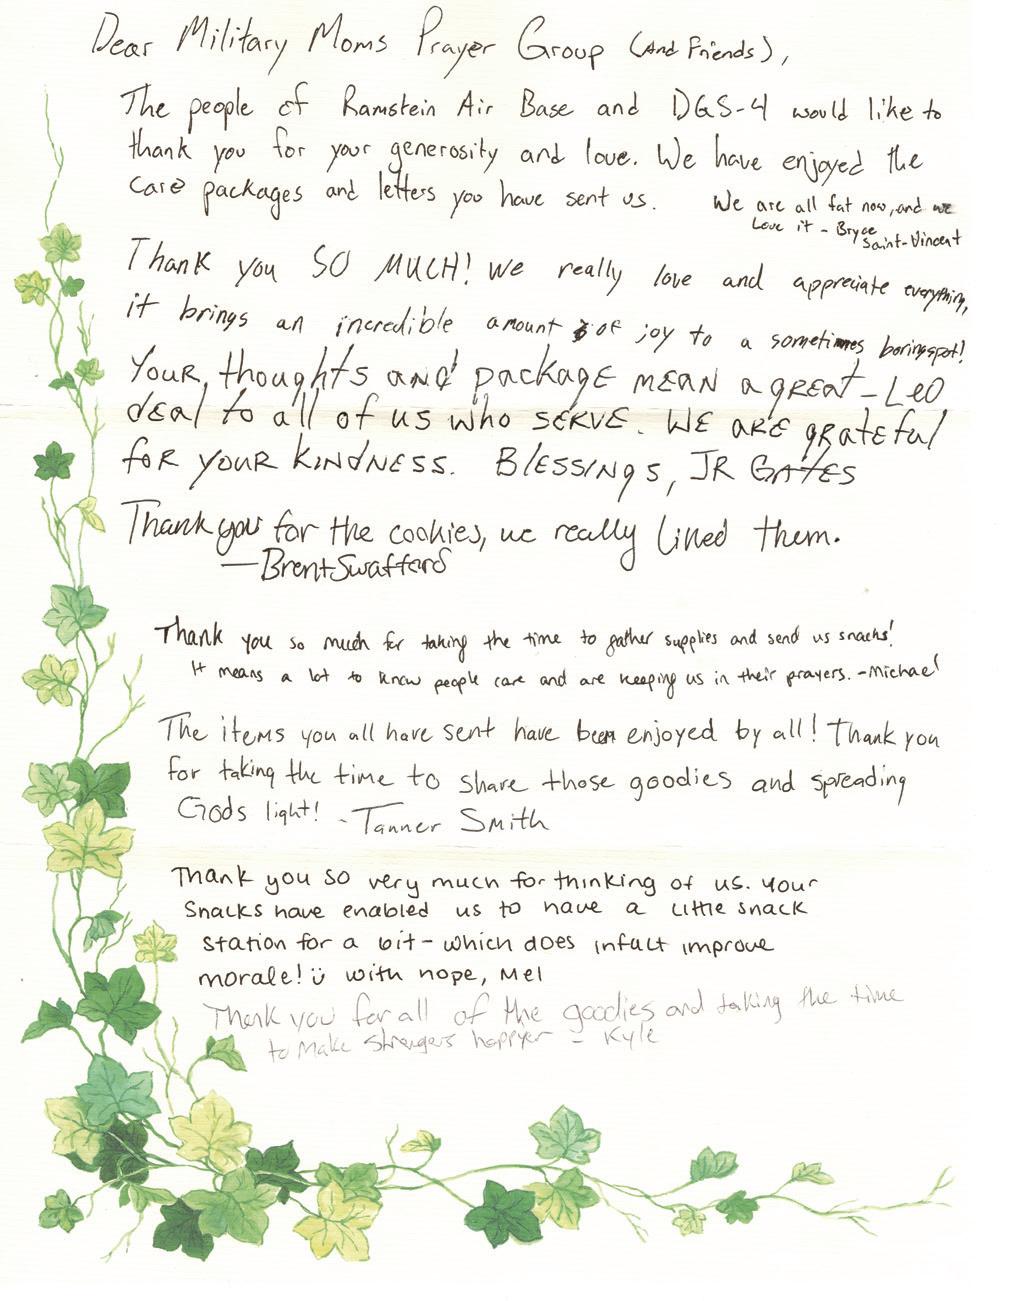 Dear Military Moms Prayer Group (And Friends),
The people of Ramstein Air Base and DGS-4 would like to
thank you for your generosity and love. We have enjoyed the
care packages and letters you have sent us.
We are all fat now, and we
Love it - Bryce
Saint-Vincent
Thank you SO MUCH! We really love and appreciate everything,
it brings an incredible amount of joy to a sometimes boring spot!
- Leo
Your thoughts and package mean a great
deal to all of us who serve. We are grateful
for your kindness. Blessings, JR Gates
Thank you for the cookies, we really liked them.
- Brent Swafford
Thank you so much for taking the time to gather supplies and send us snacks!
It means a lot to know people care and are keeping us in their prayers. - Michael
The items you all have sent have been enjoyed by all! Thank you
for taking the time to share those goodies and spreading
Gods light! - Tanner Smith
Thank you so very much for thinking of us. Your
snacks have enabled us to have a little snack
station for a bit - which does infact improve
morale! ü with hope, Mel
Thank you for all of the goodies and taking the time
to make strangers happyer - Kyle